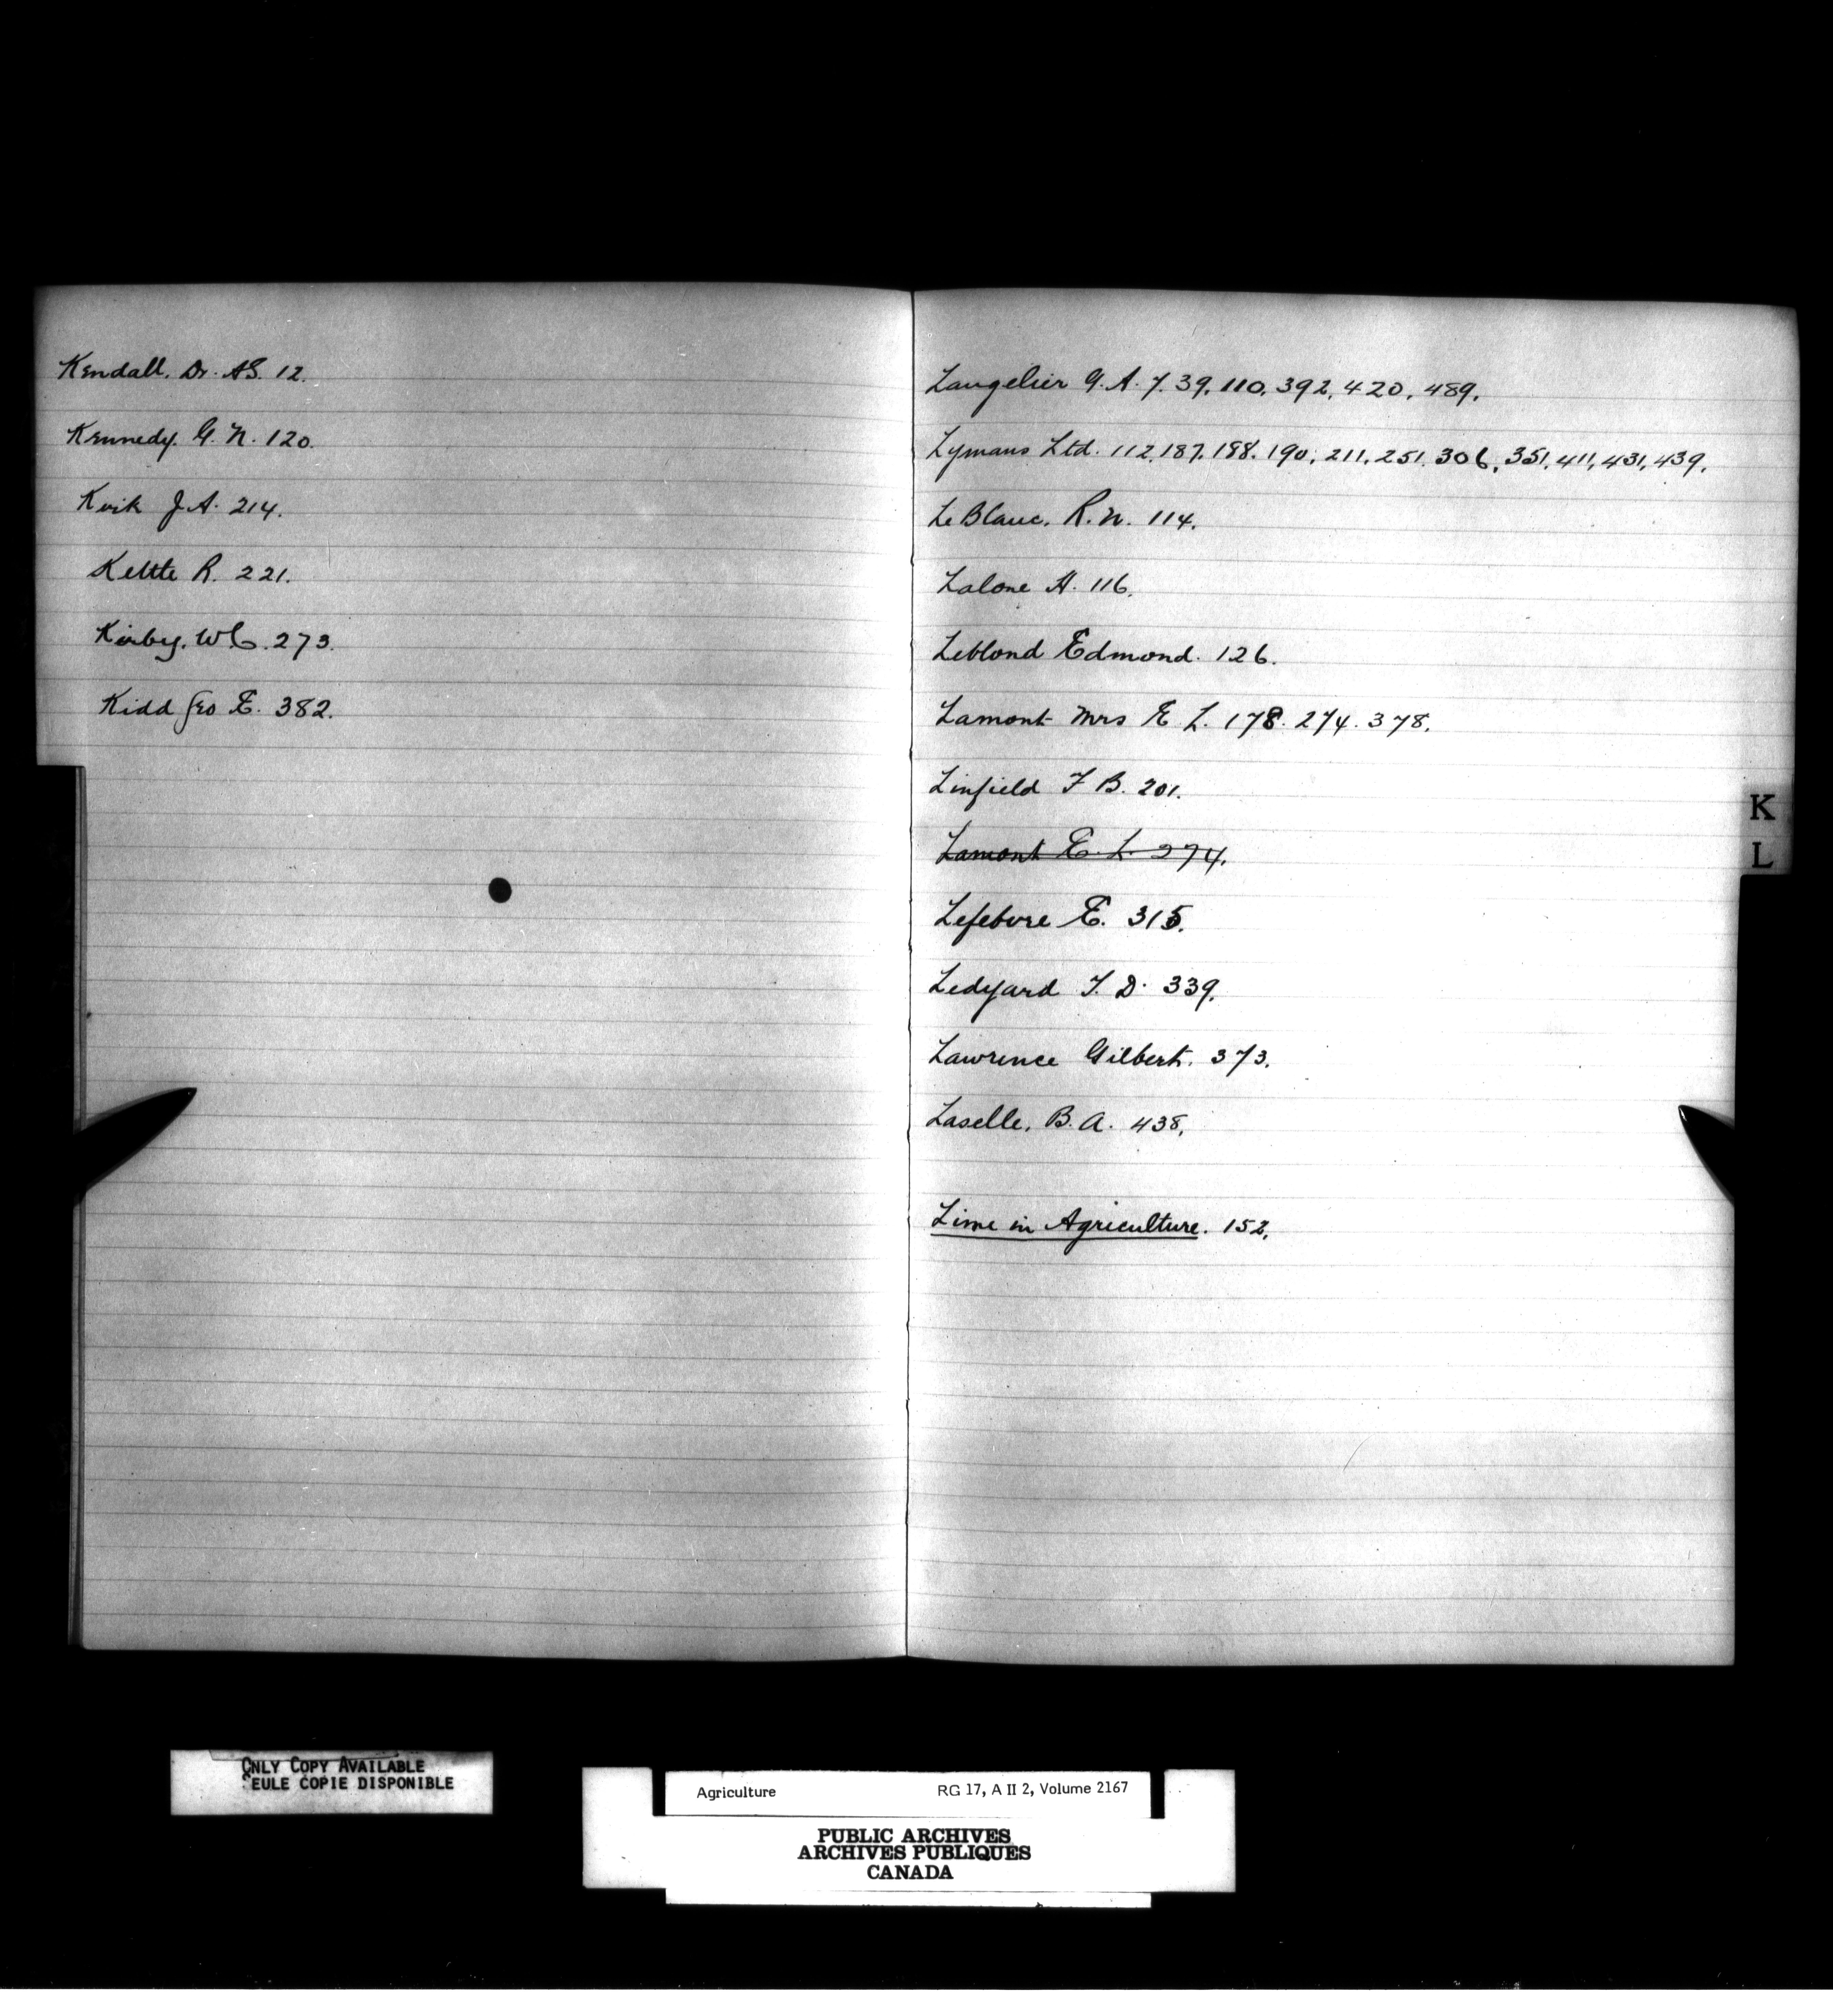 Kendall. Dr. A.S. 12.
Kennedy. G. N. 120.
Kvik J A. 214.
Kettle R. 221.
Kirby, W C. 273.
Kidd Geo E. 382.
Langelier G. A. 7. 39, 110, 392, 420, 489.
Lymans Ltd. 112, 187, 188, 190, 211, 251, 306, 351, 411, 431, 439.
LeBlanc, R. N. 114.
Lalone H. 116.
Leblond Edmond. 126.
Lamont Mrs E L. 178. 274. 378.
Linfield F B. 201.
Lamont E. L. 274.
Lefebvre E. 315.
Ledyard T. D. 339.
Lawrence Gilbert. 373.
Laselle, B. A. 438,
Lime in Agriculture. 152.
K
L
ONLY COPY AVAILABLE
SEULE COPIE DISPONIBLE
Agriculture RG 17, A II 2, Volume 2167
PUBLIC ARCHIVES
ARCHIVES PUBLIQUES
CANADA